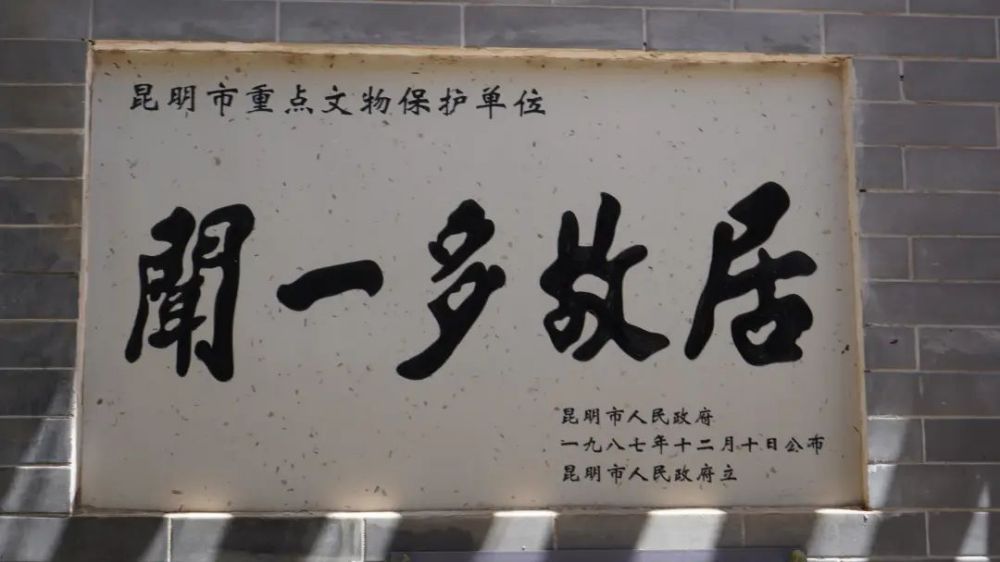 昆明市重点文物保护单位
聞一多故居
昆明市人民政府
一九八七年十二月十日公布
昆明市人民政府立